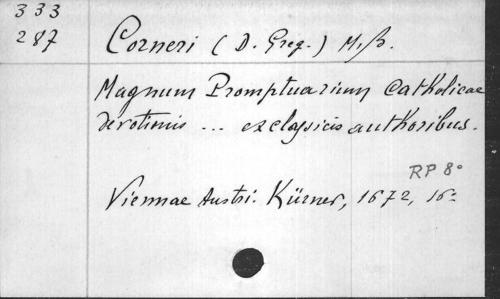 333
287
Corneri (D. Greg.) M.ß.
Magnum Promptuarium Catholicae
devotionis ... ex classicis authoribus.
RP 8º
Viennae Austri: Kürner, 1672, 16º